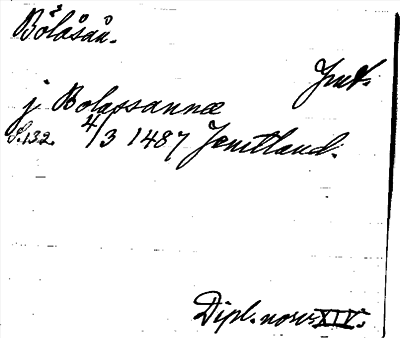 Bölåsån.
Jmt.
j Bolassannæ
S.132. 4/3 1487 Jemtland.
Dipl. norv. XIV.